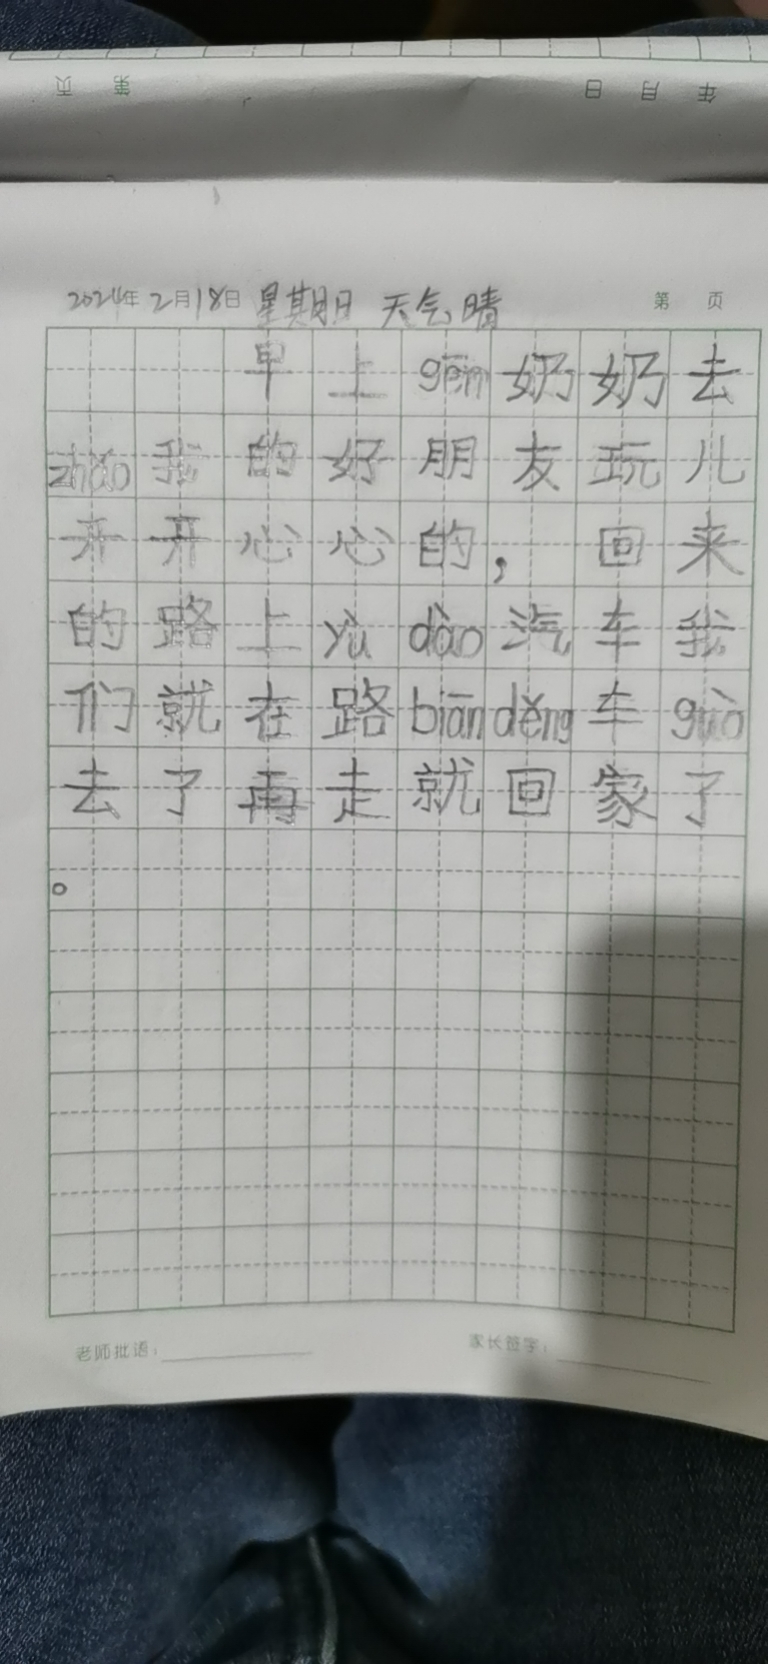 第 页 年 月 日
2024年2月18日 星期日 天气晴 第 页
早上gēn奶奶去
zhǎo我的好朋友玩儿
开开心心的，回来
的路上yù dào汽车我
们就在路biān děng车guò
去了再走就回家了
。
老师批语： 家长签字：